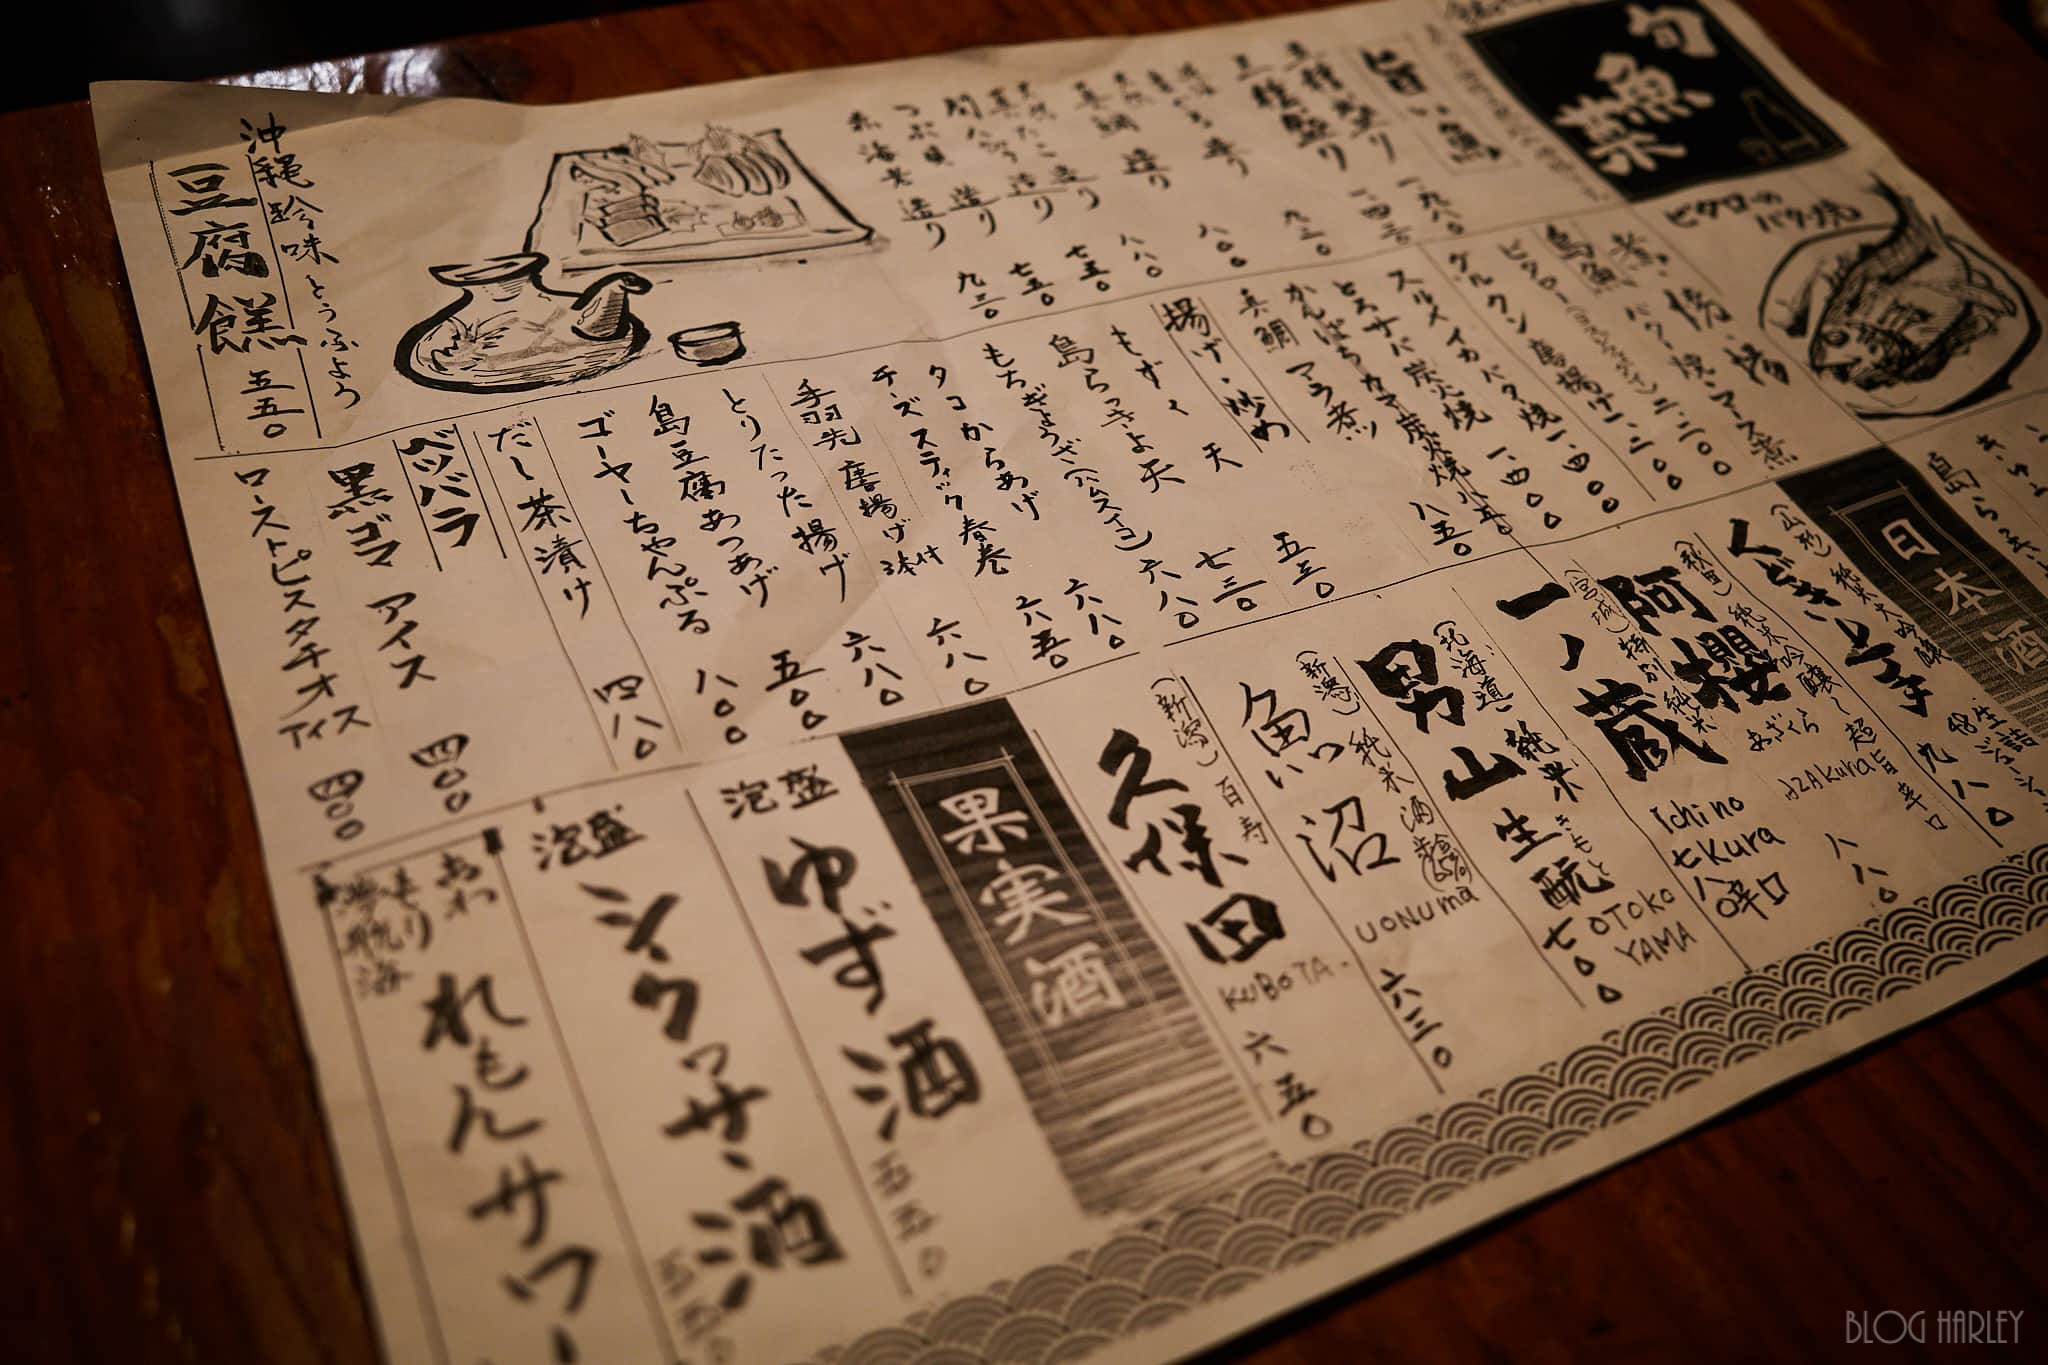 旬魚菜
旨い魚
五種盛り 一、九八〇
三種盛り 一、四三〇
造り 九三〇
造り 八〇〇
真鯛 造り 八八〇
造り 七五〇
造り 七五〇
つぶ貝 造り 九三〇
赤海老
沖縄珍味とうふよう
豆腐餻 五五〇
ビタローのバター焼
煮・焼・揚
島魚 バター焼・マース煮
ビタロー 二、二〇〇
グルクン 唐揚げ 一、二〇〇
スルメイカバタ焼 一、四〇〇
とろサバ炭火焼 一、四〇〇
かんぱちカマ炭火焼 八五〇
真鯛 アラ煮 八五〇
揚げ・炒め
もずく天 五三〇
島らっきょ天 七三〇
もちぎょうざ 六八〇
タコからあげ 六八〇
チーズスティック春巻 六五〇
手羽先唐揚げ 六八〇
とりたった揚げ 六八〇
島豆腐あつあげ 五〇〇
ゴーヤーちゃんぷる 八〇〇
だし茶漬け 四八〇
ベツバラ
黒ゴマアイス 四〇〇
ローストピスタチオアイス 四〇〇
日本酒
くどき上手
(山形) 純米大吟醸 生詰
九八〇
阿櫻
(秋田) 純米吟醸 超旨辛口
あざくら AZAKura
八八〇
一ノ蔵
(宮城) 特別純米
Ichino Kura
辛口
七八〇
男山
(北海道) 純米
生酛 きもと
OTOKO YAMA
七〇〇
魚沼
(新潟) 純米酒
UONUma
六三〇
久保田
(新潟) 百寿
KUBOTA
六五〇
果実酒
泡盛
ゆず酒
五五〇
泡盛
シークヮサー酒
五五〇
あわもり
夢航海
れもんサワー
BLOG HARLEY